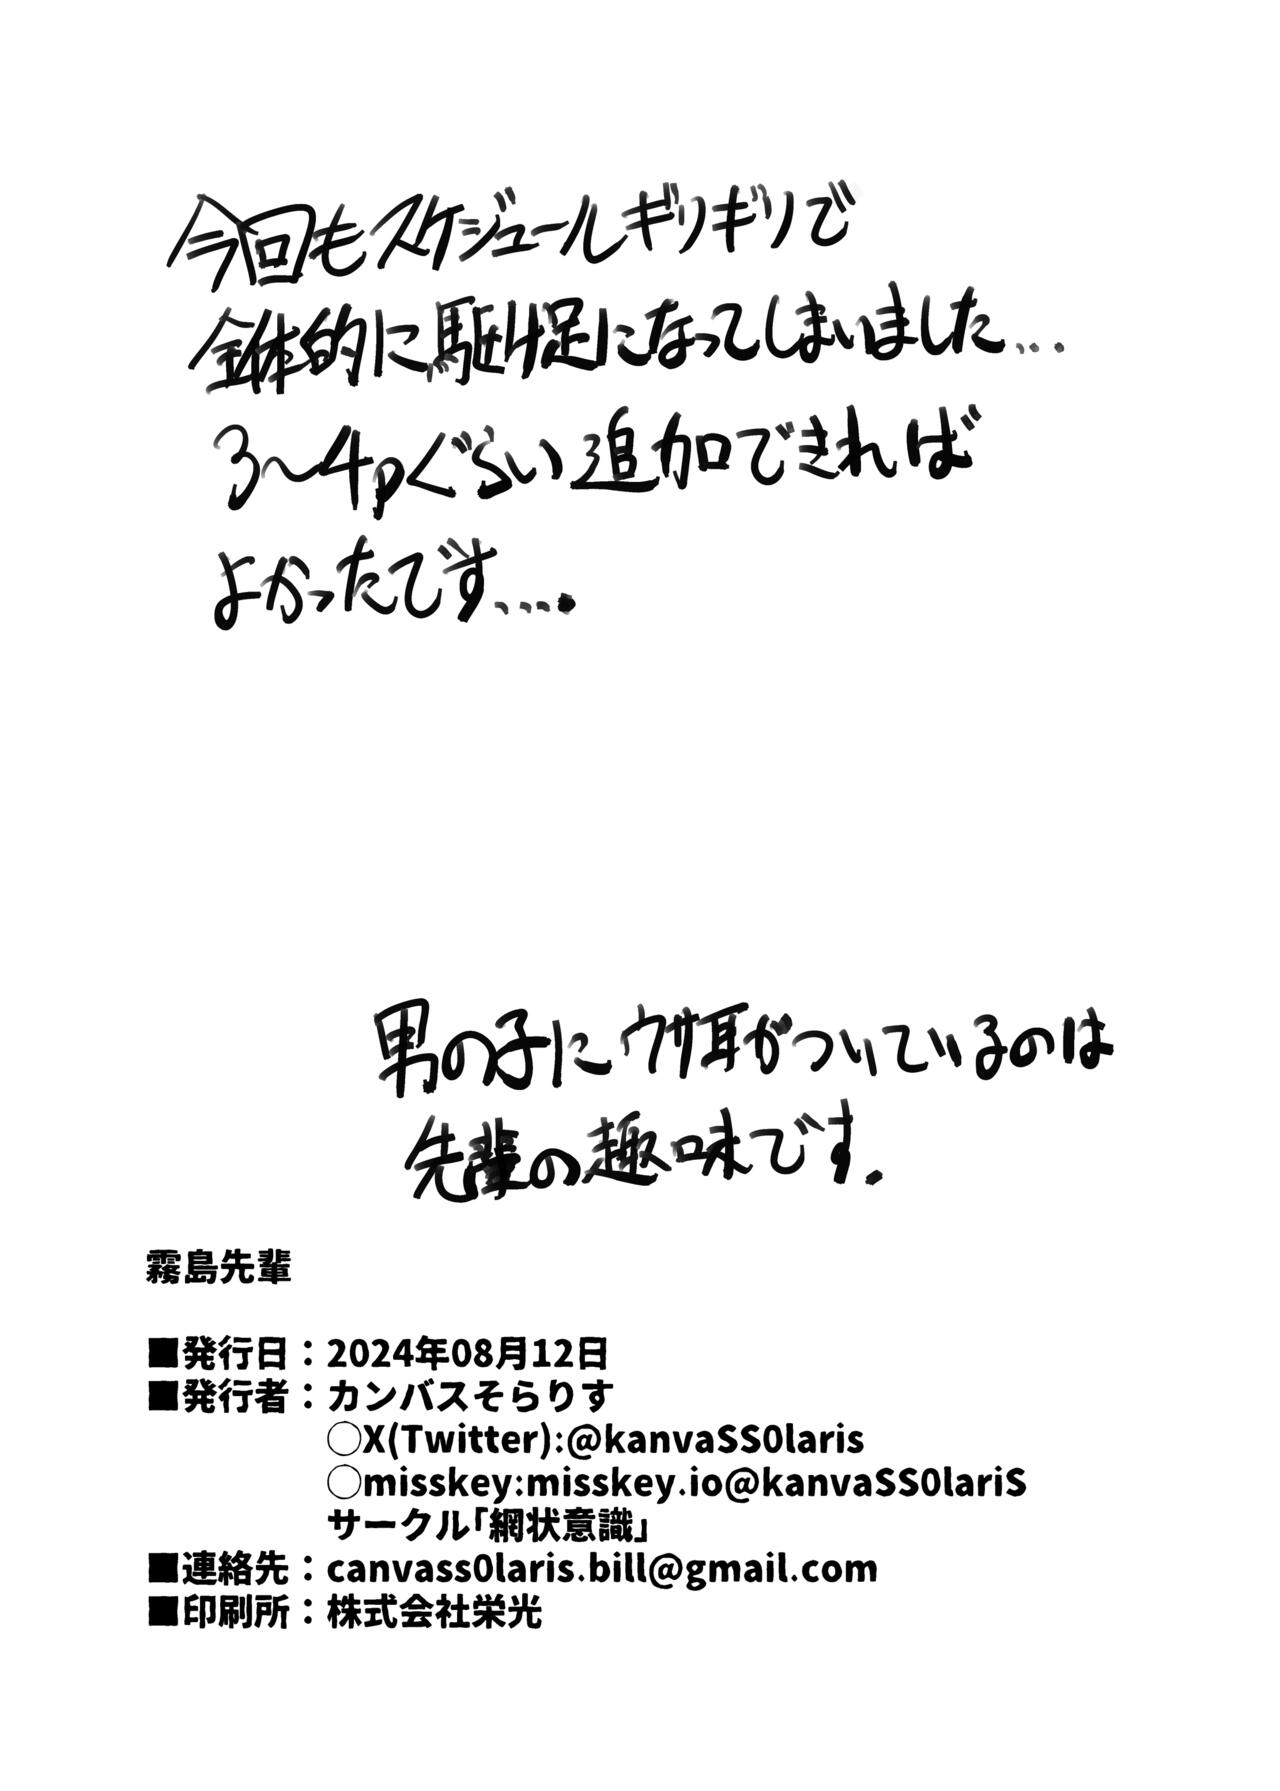 今回もスケジュールギリギリで
全体的に駆け足になってしまいました...
3～4pぐらい追加できれば
よかったです....
男の子にウサ耳がついているのは
先輩の趣味です.
霧島先輩
■発行日：2024年08月12日
■発行者：カンバスそらりす
◯X(Twitter):@kanvaSS0laris
◯misskey:misskey.io@kanvaSS0lariS
サークル「網状意識」
■連絡先：canvass0laris.bill@gmail.com
■印刷所：株式会社栄光